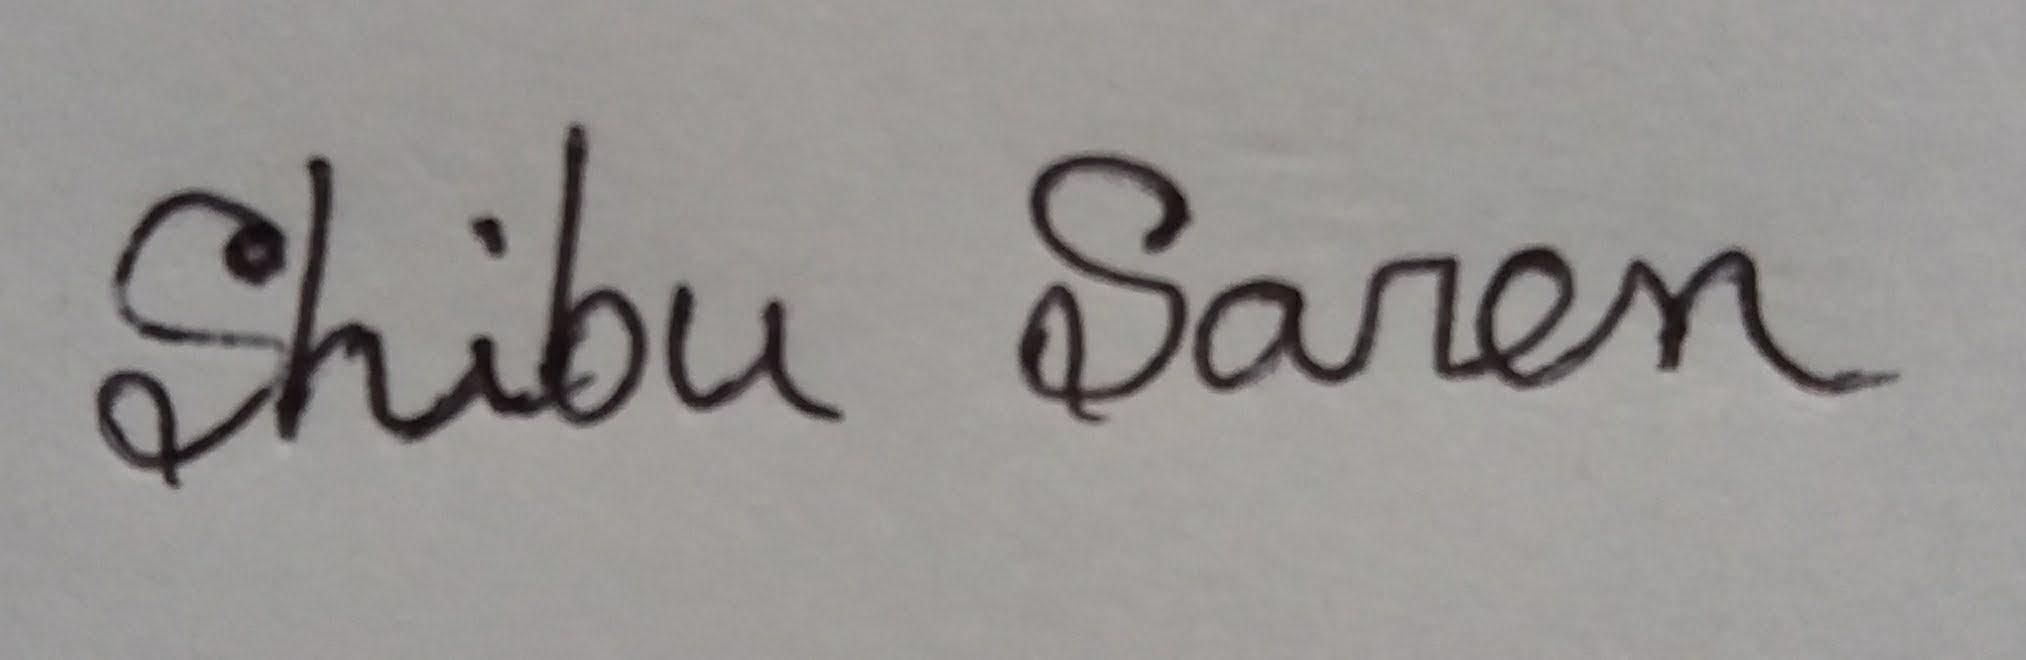 Shibu Saren